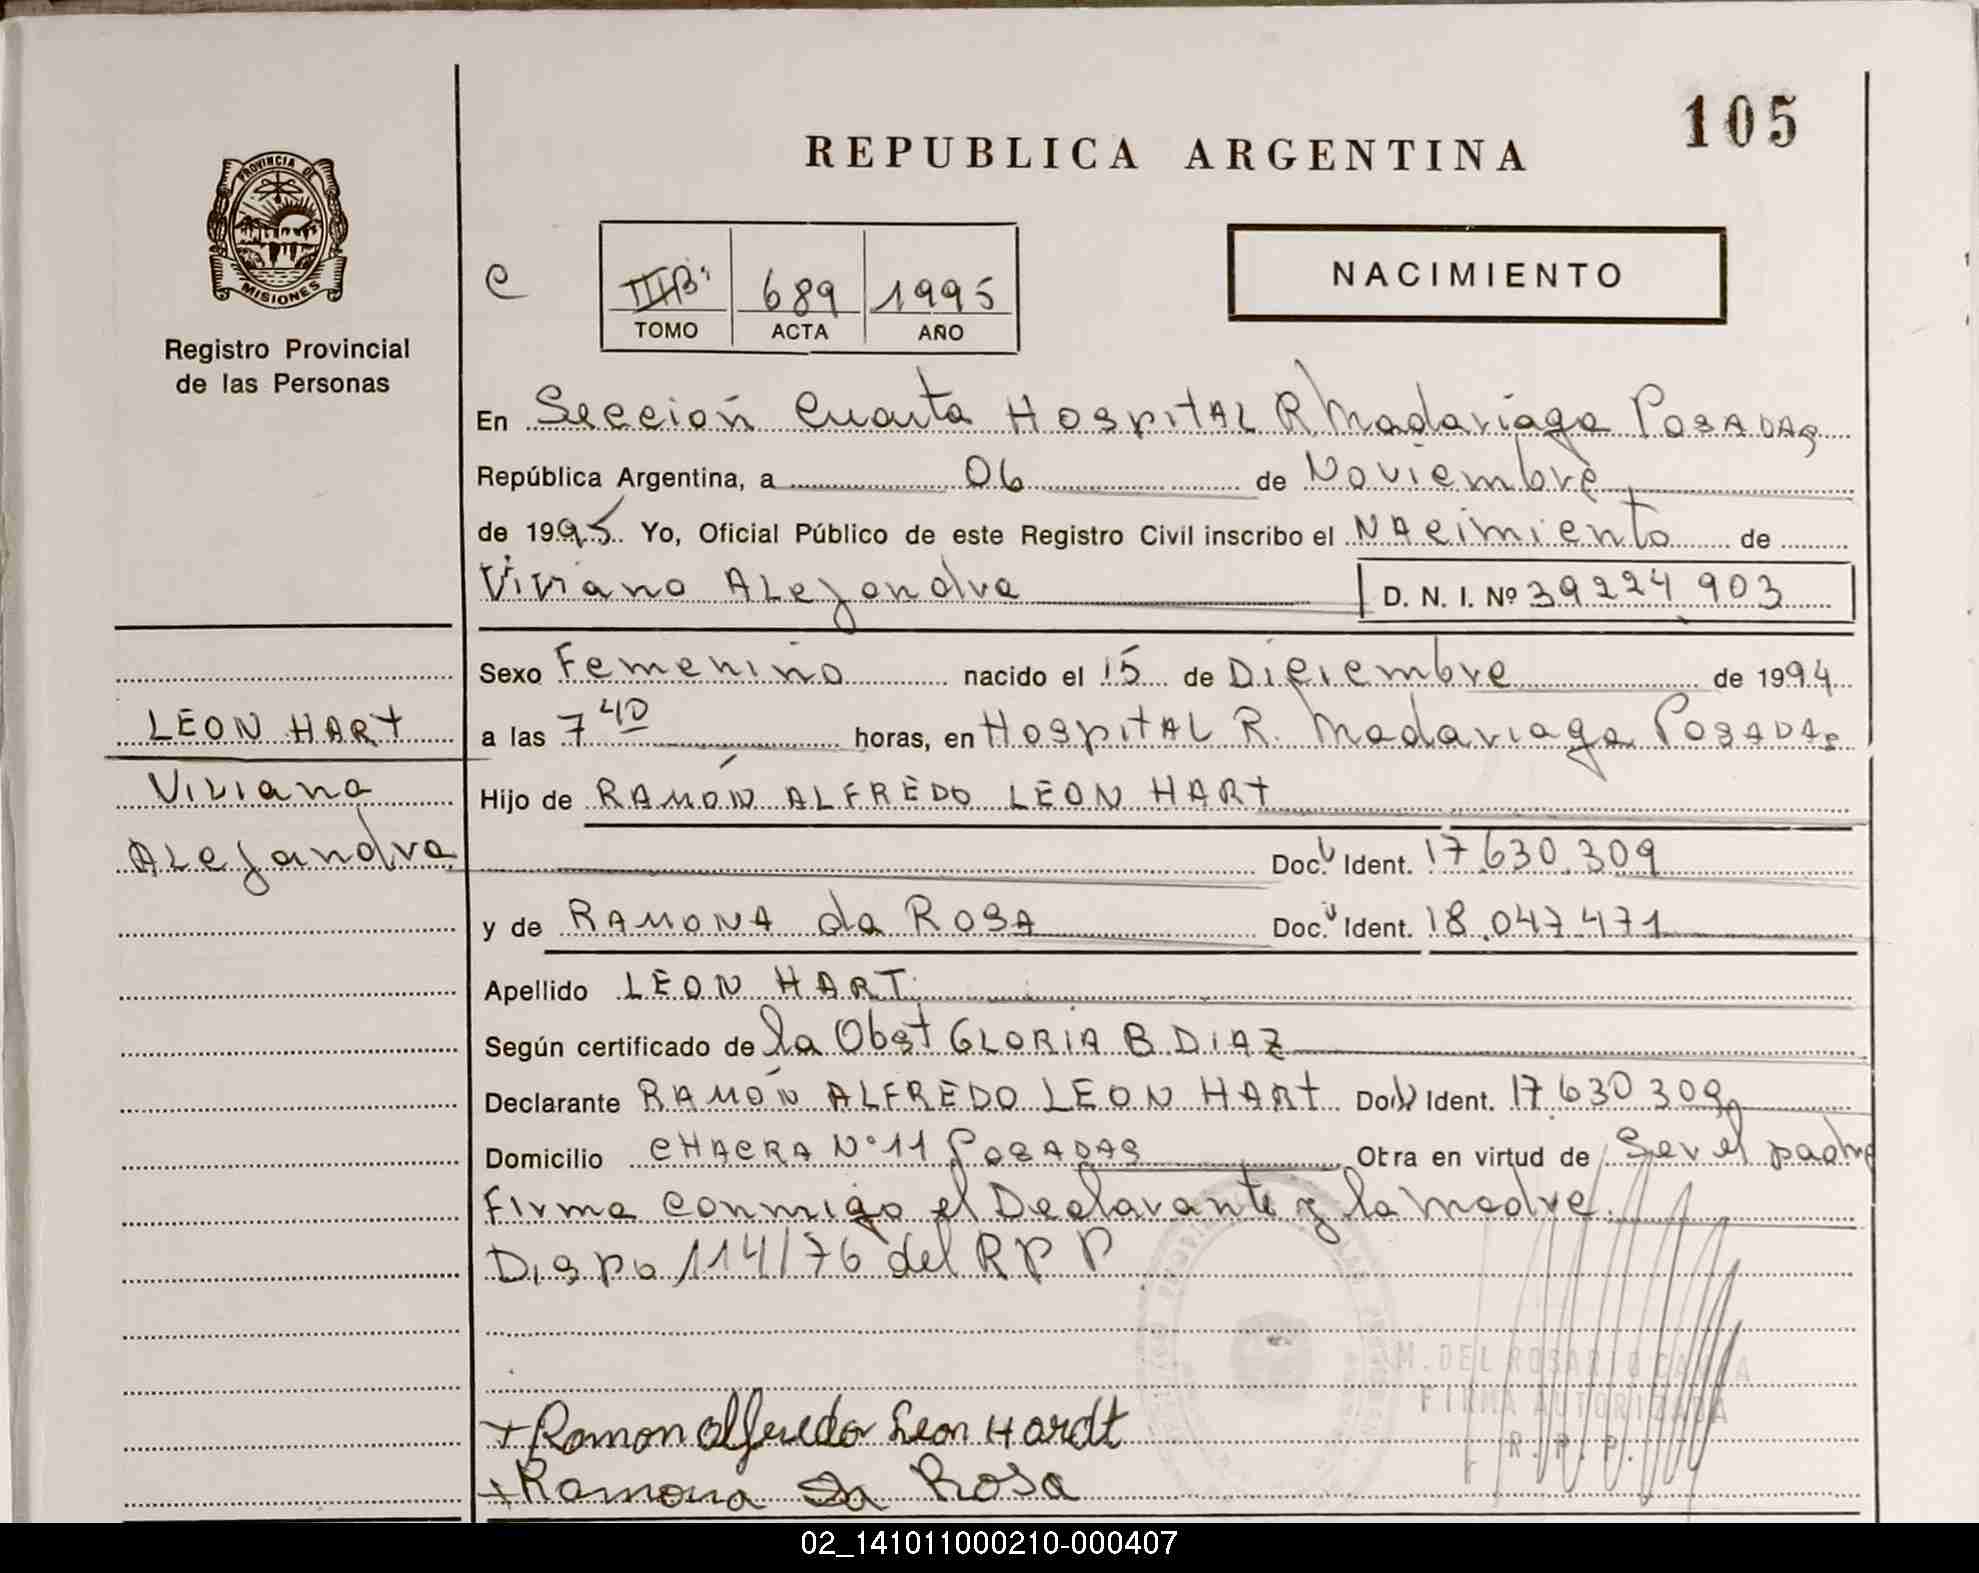 105
REPUBLICA ARGENTINA
PROVINCIA DE
MISIONES
Registro Provincial
de las Personas
e
IIIBⁱˢ 689 1995
TOMO ACTA AÑO
NACIMIENTO
En Sección Cuarta Hospital R Madariaga Posadas
República Argentina, a 06 de Noviembre
de 1995 Yo, Oficial Público de este Registro Civil inscribo el Nacimiento de
Viviana Alejandra D. N. I. Nº 39224.903
Sexo Femenino nacido el 15 de Diciembre de 1994
LEON HART
a las 7 40 horas, en Hospital R. Madariaga Posadas
Viviana
Hijo de RAMÓN ALFREDO LEON HART
Alejandra
Doc. Ident. 17.630.309
y de RAMONA da ROSA Doc. Ident. 18.047.471
Apellido LEON HART.
Según certificado de la Obst GLORIA B DIAZ
Declarante RAMÓN ALFREDO LEON HART Doc. Ident. 17.630 309
Domicilio CHACRA Nº 11 Posadas Otra en virtud de Ser el padre
Firma conmigo el Declarante y la madre.
Dispo 114/76 del R P P
M. DEL ROSARIO
FIRMA AUTORIZADA
R. P. P.
+ Ramon Alfredo Leon Hardt
+ Ramona Da Rosa
02_141011000210-000407